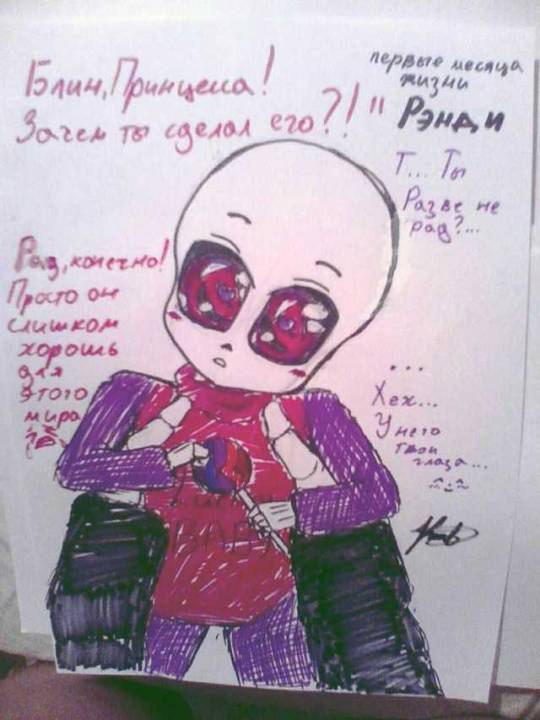 Блин, Принцеса!
Зачем ты сделал его?!"
первые месяца
жизни
Рэнди
Т... Ты
Разве не
рад?...
Рад, конечно!
Просто он
слишком
хорошь
для
этого
мира
...
Хех...
У него
твои
глаза...
BABY